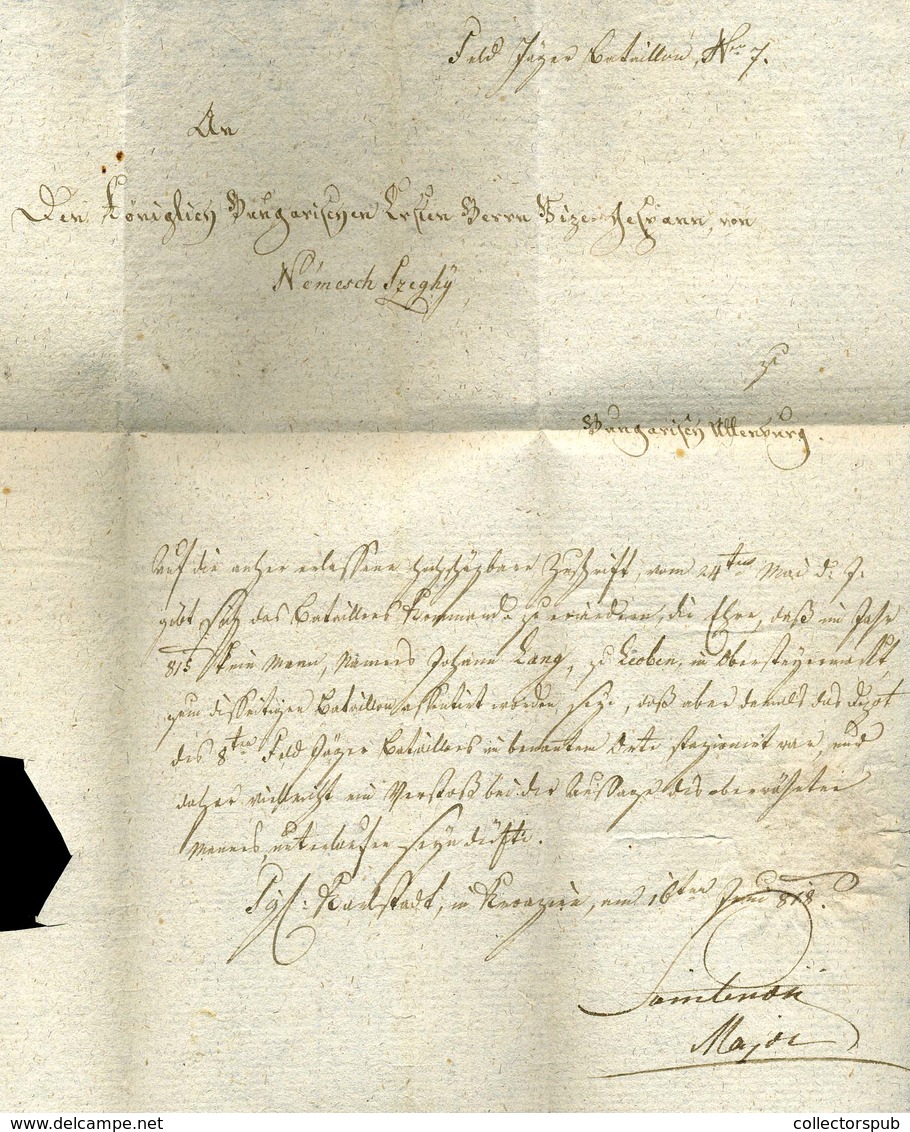 Feld Jäger Bataillon, Nro 7.
An
Den Königlich Hungarischen Ersten Herrn Vize-Gespann, von
Némesch Szeghÿ
zu
Hungarisch Altenburg.
Auf die anher erlassene hochschäzbare Zuschrift, vom 24ten Mai d: J:
gibt sich das Bataillons Kommando zu erwiedern, die Ehre, daß im Jahr
815 kein Mann, Namens Johann Lang, zu Leoben, in Obersteyermarkt,
zum disseitigen Bataillon assentirt worden seye, daß aber damals das Depot
des 8ten Feld Jäger Bataillons in benanntem Orte stazionirt war, und
daher vielleicht ein Verstoß bei der Aussage des oberwähnten
Mannes, unterlaufen seyn dürfte.
Sig: Karlstadt, in Kroazien, am 16ten Juni 818.
Major
www.delcampe.net
collectorspub